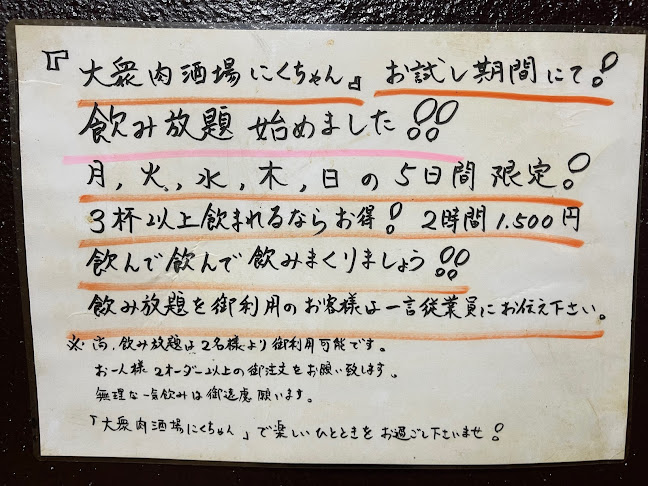 『大衆肉酒場にくちゃん』お試し期間にて!
飲み放題 始めました!!
月,火,水,木,日の5日間 限定!
3杯以上飲まれるならお得! 2時間 1.500円
飲んで飲んで飲みまくりましょう!!
飲み放題を御利用のお客様は一言従業員にお伝え下さい。
※尚,飲み放題は2名様より御利用可能です。
お一人様 2オーダー以上の御注文をお願い致します。
無理な一気飲みは御遠慮願います。
「大衆肉酒場にくちゃん」で楽しいひとときをお過ごし下さいませ!